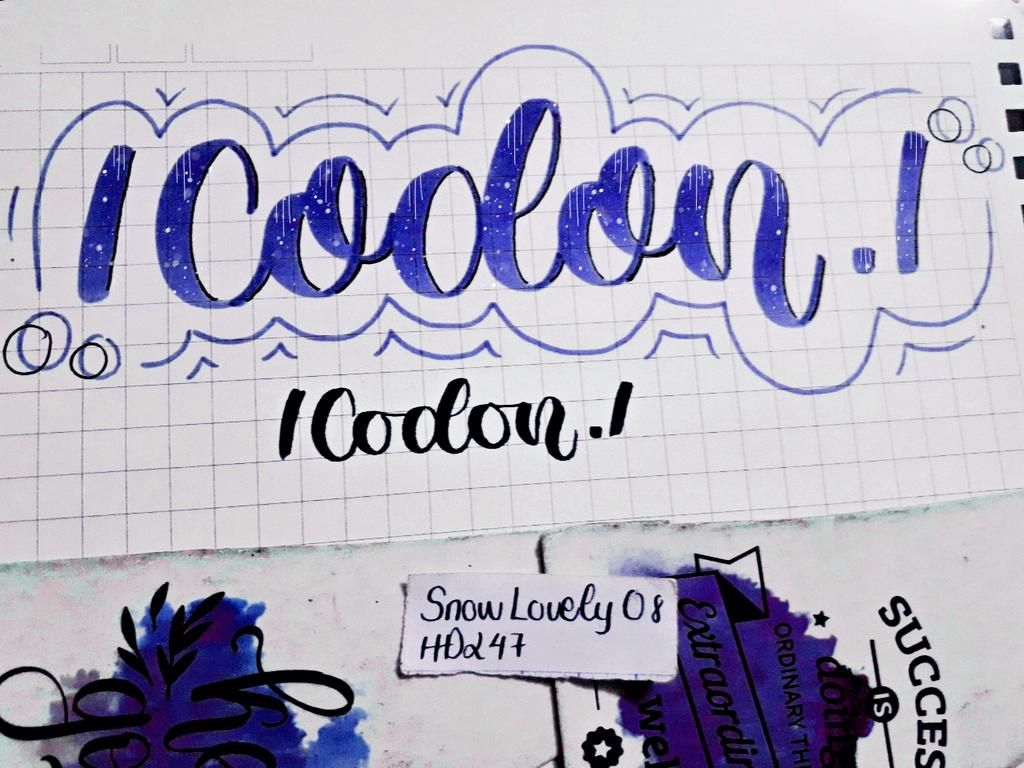 /Codon./
/Codon./
Snow Lovely 08
HD247
Extraordin
ORDINARY TH
doing
wel
SUCCES
IS